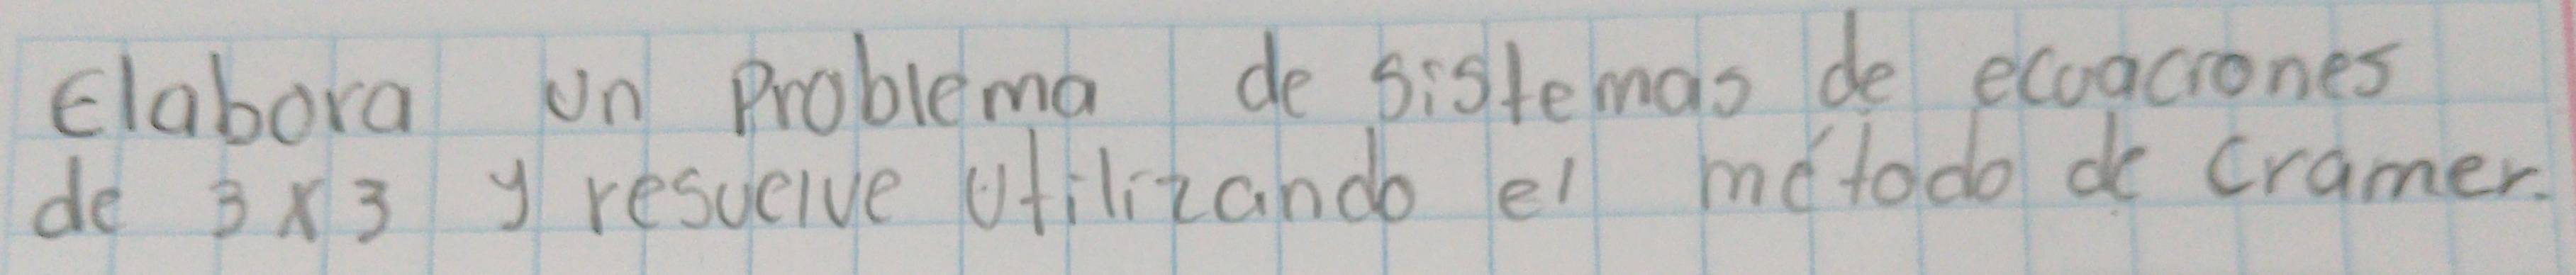 Elabora un Problema de sistemas de ecuaciones
de 3x3 y resuelve utilizando el método de cramer.